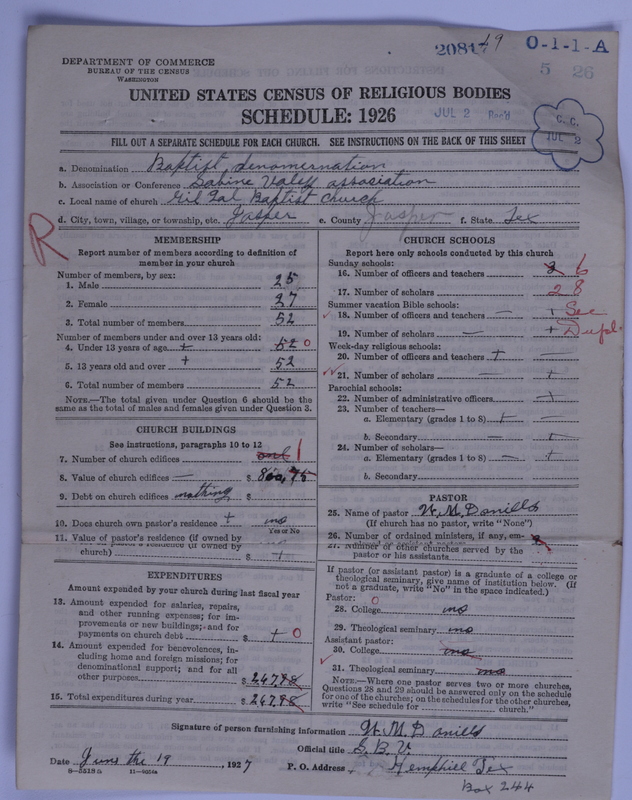 20817 49 O-1-1-A
5 26
DEPARTMENT OF COMMERCE
BUREAU OF THE CENSUS
WASHINGTON
UNITED STATES CENSUS OF RELIGIOUS BODIES
SCHEDULE: 1926
JUL 2 Rec'd
C. C.
JUL 2
FILL OUT A SEPARATE SCHEDULE FOR EACH CHURCH. SEE INSTRUCTIONS ON THE BACK OF THIS SHEET
a. Denomination Baptist denomernation
b. Association or Conference Sabine Valey association
c. Local name of church Gil Gal Baptist Church
d. City, town, village, or township, etc. Jasper e. County Jasper f. State Tex
R
MEMBERSHIP
Report number of members according to definition of
member in your church
Number of members, by sex:
1. Male 25
2. Female 27
3. Total number of members 52
Number of members under and over 13 years old:
4. Under 13 years of age + 52 0
5. 13 years old and over + 52
6. Total number of members 52
NOTE.—The total given under Question 6 should be
the same as the total of males and females given under Question 3.
CHURCH BUILDINGS
See instructions, paragraphs 10 to 12
7. Number of church edifices one 1
8. Value of church edifices — $ 800,75
9. Debt on church edifices nothing $
10. Does church own pastor's residence + no
Yes or No
11. Value of pastor's residence (if owned by
church) $ +
EXPENDITURES
Amount expended by your church during last fiscal year
13. Amount expended for salaries, repairs,
and other running expenses; for im-
provements or new buildings; and for
payments on church debt $ + 0
14. Amount expended for benevolences, in-
cluding home and foreign missions; for
denominational support; and for all
other purposes $ 247,98
15. Total expenditures during year $ 247,98
CHURCH SCHOOLS
Report here only schools conducted by this church
Sunday schools:
16. Number of officers and teachers 2 6
17. Number of scholars 28
Summer vacation Bible schools:
18. Number of officers and teachers — + See
19. Number of scholars — + Dupl.
Week-day religious schools:
20. Number of officers and teachers + —
21. Number of scholars — +
Parochial schools:
22. Number of administrative officers +
23. Number of teachers—
a. Elementary (grades 1 to 8) + —
b. Secondary — +
24. Number of scholars—
a. Elementary (grades 1 to 8) — +
b. Secondary
PASTOR
25. Name of pastor W. M. Danills
(If church has no pastor, write "None")
26. Number of ordained ministers, if any, em-
27. Number of other churches served by the
pastor or his assistants
If pastor (or assistant pastor) is a graduate of a college or
theological seminary, give name of institution below. (If
not a graduate, write "No" in the space indicated.)
Pastor: 0
28. College no
29. Theological seminary no
Assistant pastor:
30. College no
31. Theological seminary no
NOTE.—Where one pastor serves two or more churches,
Questions 28 and 29 should be answered only on the schedule
for one of the churches; on the schedules for the other churches,
write "See schedule for church."
Signature of person furnishing information W. M. Danills
Official title
Date June the 19, 1927 P. O. Address Hemphill Tex
8—5518a 11—9004a
Box 244